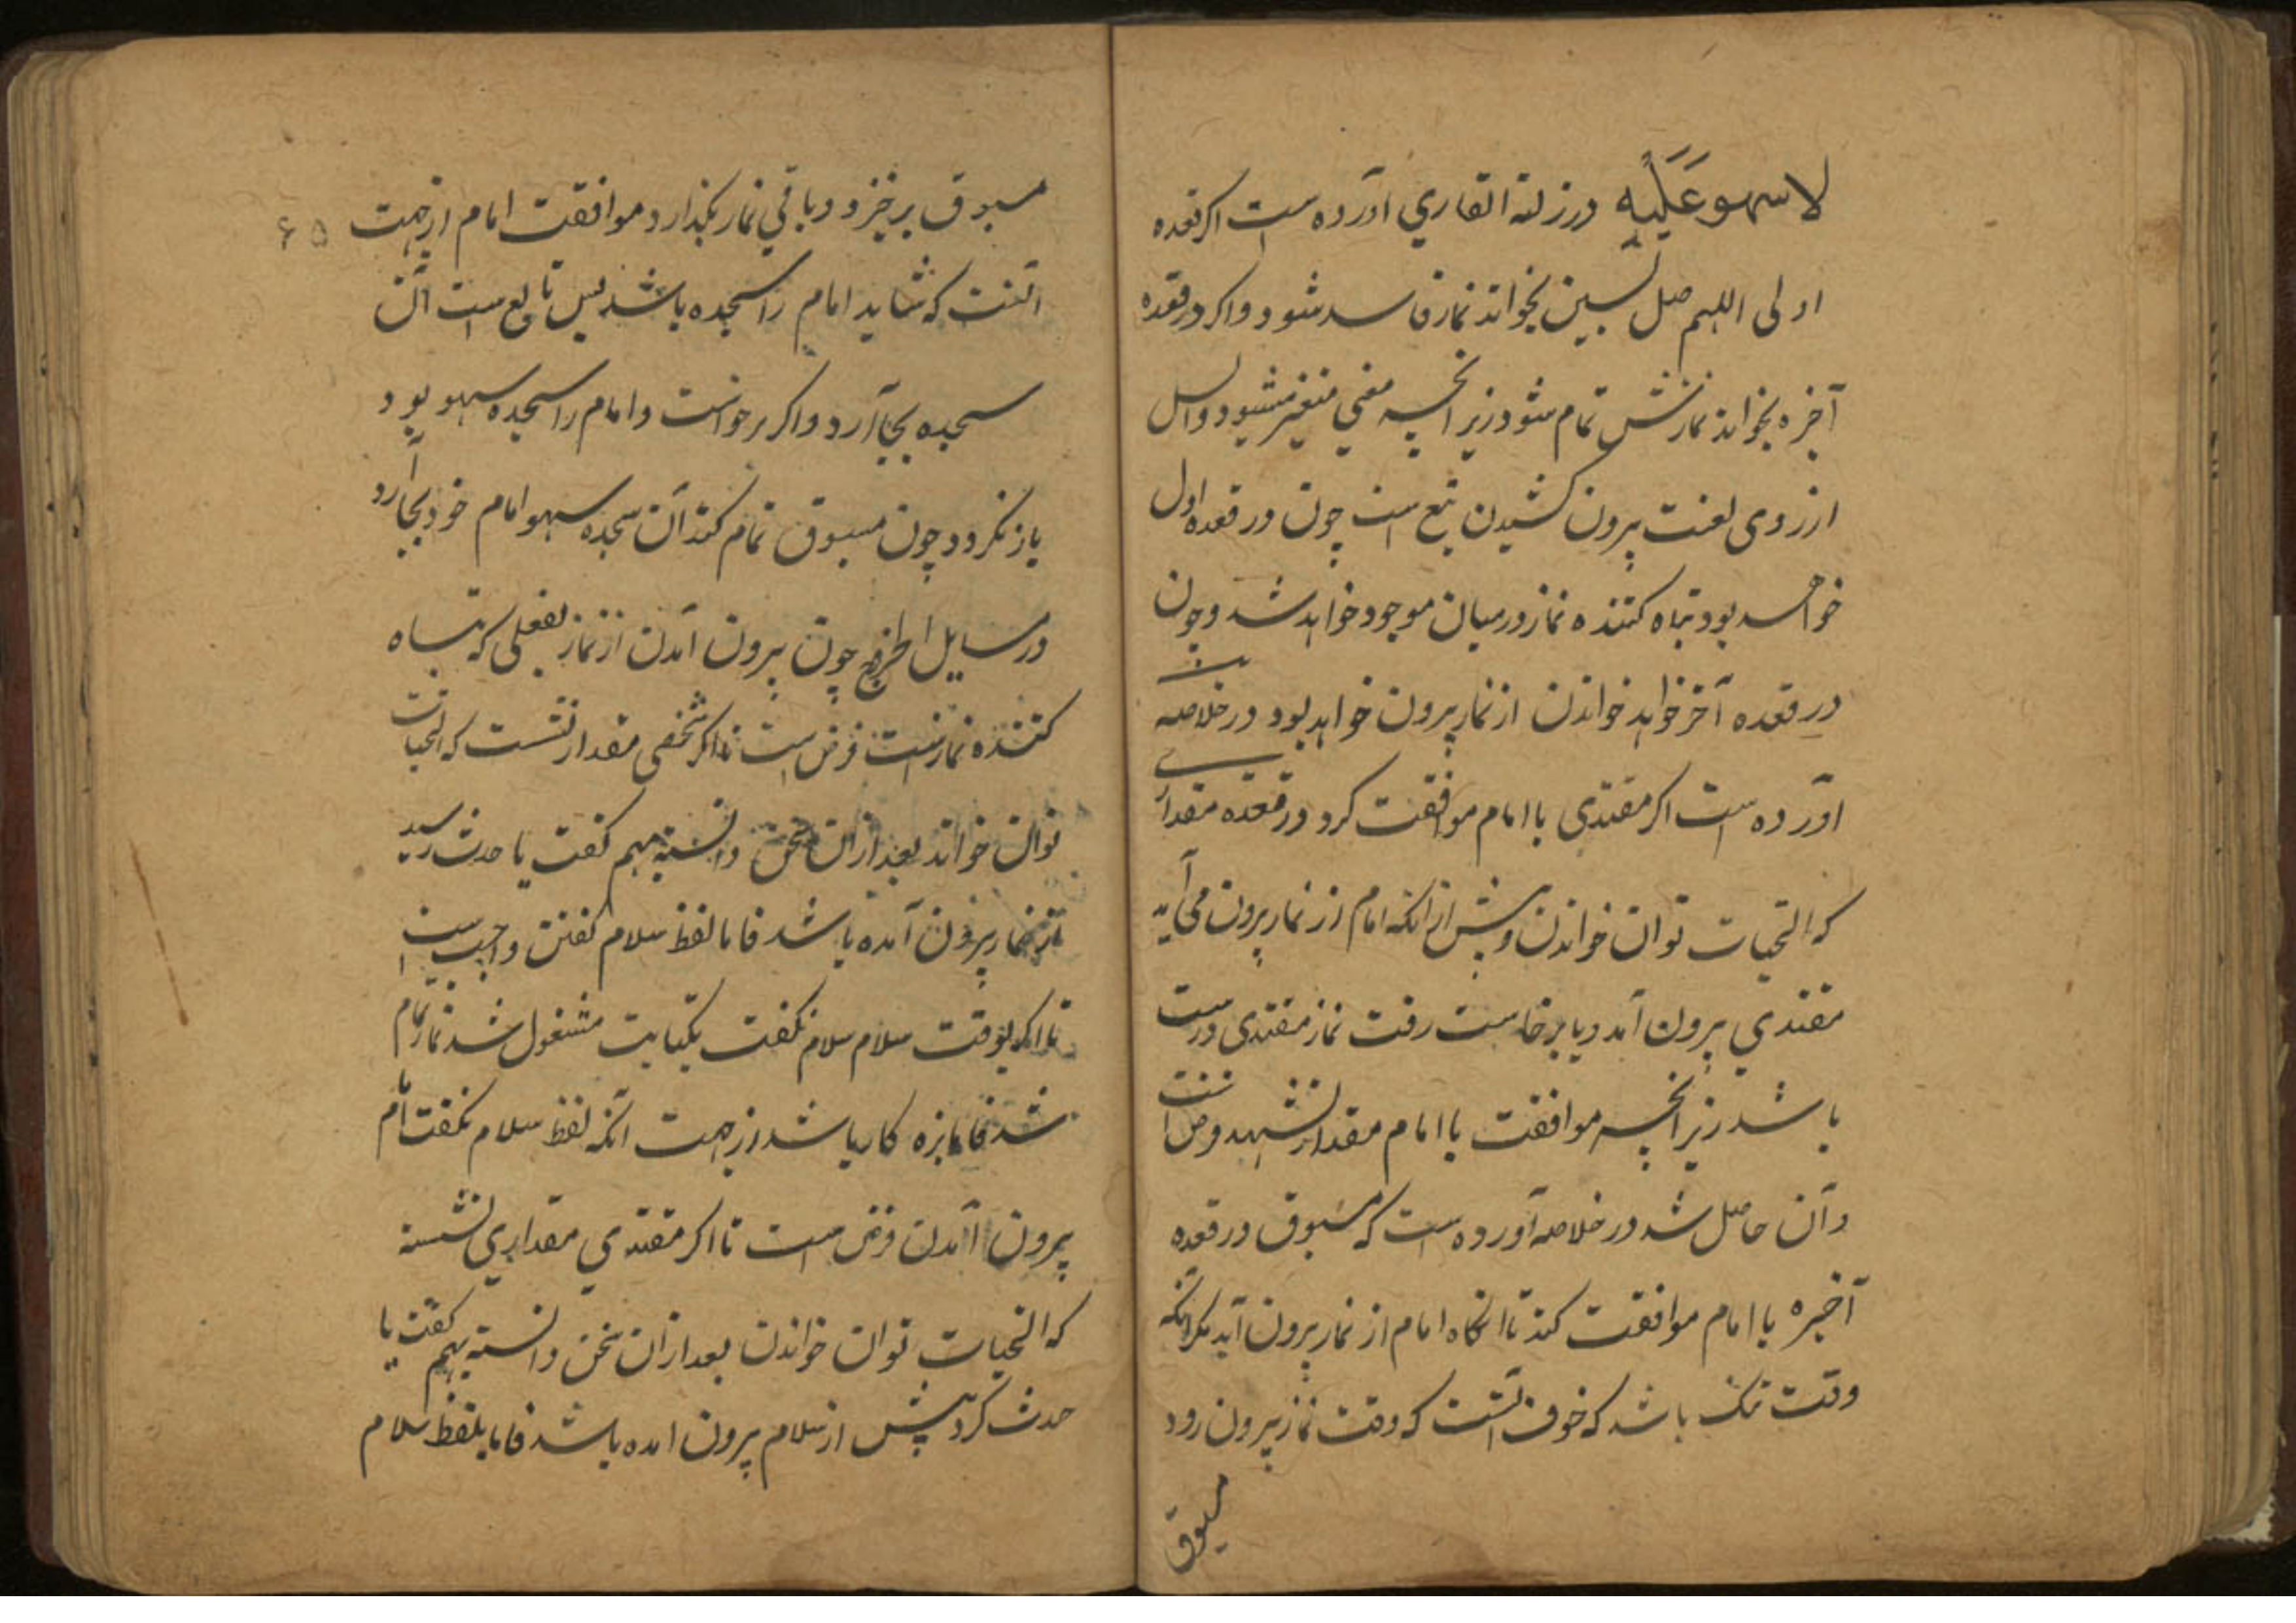 لا سهو عَلَیْهِ در زلة القاري آورده است اکر قعده
اولی اللهم صل بسین بخواند نماز فاسد شود و اکر در قعده
آخره بخواند نمازش تمام شود زیرانچه معنی متغیر میشود و السل
از روی لغت بیرون کشیدن تیغ است چون در قعده اول
خواهد بود تباه کننده نماز در میان موجود خواهد شد و چون
در قعده آخر خواهد خواندن از نماز بیرون خواهد بود در خلاصه
آورده است اکر مقتدی با امام موافقت کرد در قعده مقداری
که التحیات توان خواندن و پیش از انکه امام از نماز بیرون می آید
مقتدي بیرون آمد و یا برخاست رفت نماز مقتدی درست
باشد زیرانچه موافقت با امام مقدار تشهد فرض است
و آن حاصل شد در خلاصه آورده است که مسبوق در قعده
آخیره با امام موافقت کند تا انکاه امام از نماز بیرون آید مکر انکه
وقت تنک باشد که خوف آنست که وقت نماز بیرون رود
مسبوق
مسبوق برخیزد و باقي نماز بکذارد و موافقت امام از جهت ۶۵
آنست که شاید امام را سجده باشد پس تابع است آن
سجده بجا آرد و اکر برخواست و امام را سجده سهو بود
باز نکردد چون مسبوق تمام کند آن سجده سهو امام خود بجا آرد
در مسایل الخروج چون بیرون آمدن از نماز بفعلی که تباه
کننده نماز است فرض است تا اکر شخصی مقدار نشست که التحیات
توان خواند بعد ازان سخن دانسته هم کفت یا حدث رسید
از نماز بیرون آمده باشد فاما لفظ سلام کفتن واجب است
تا اکر بوقت سلام سلام نکفت بکتابت مشغول شد نماز تمام
شد فاما بزه کار باشد از جهت آنکه لفظ سلام نکفت اما
بیرون آمدن فرض است تا اکر مقتدي مقداري نشسته
که التحیات توان خواندن بعد ازان سخن دانسته هم کفت یا
حدث کرد پیش از سلام بیرون امده باشد فاما بلفظ سلام